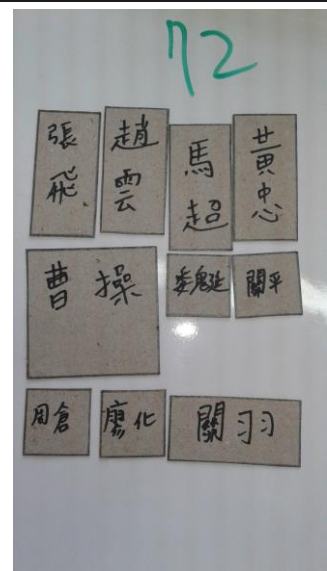 72
張飛
趙雲
馬超
黃忠
曹操
魏延
關平
周倉
廖化
關羽